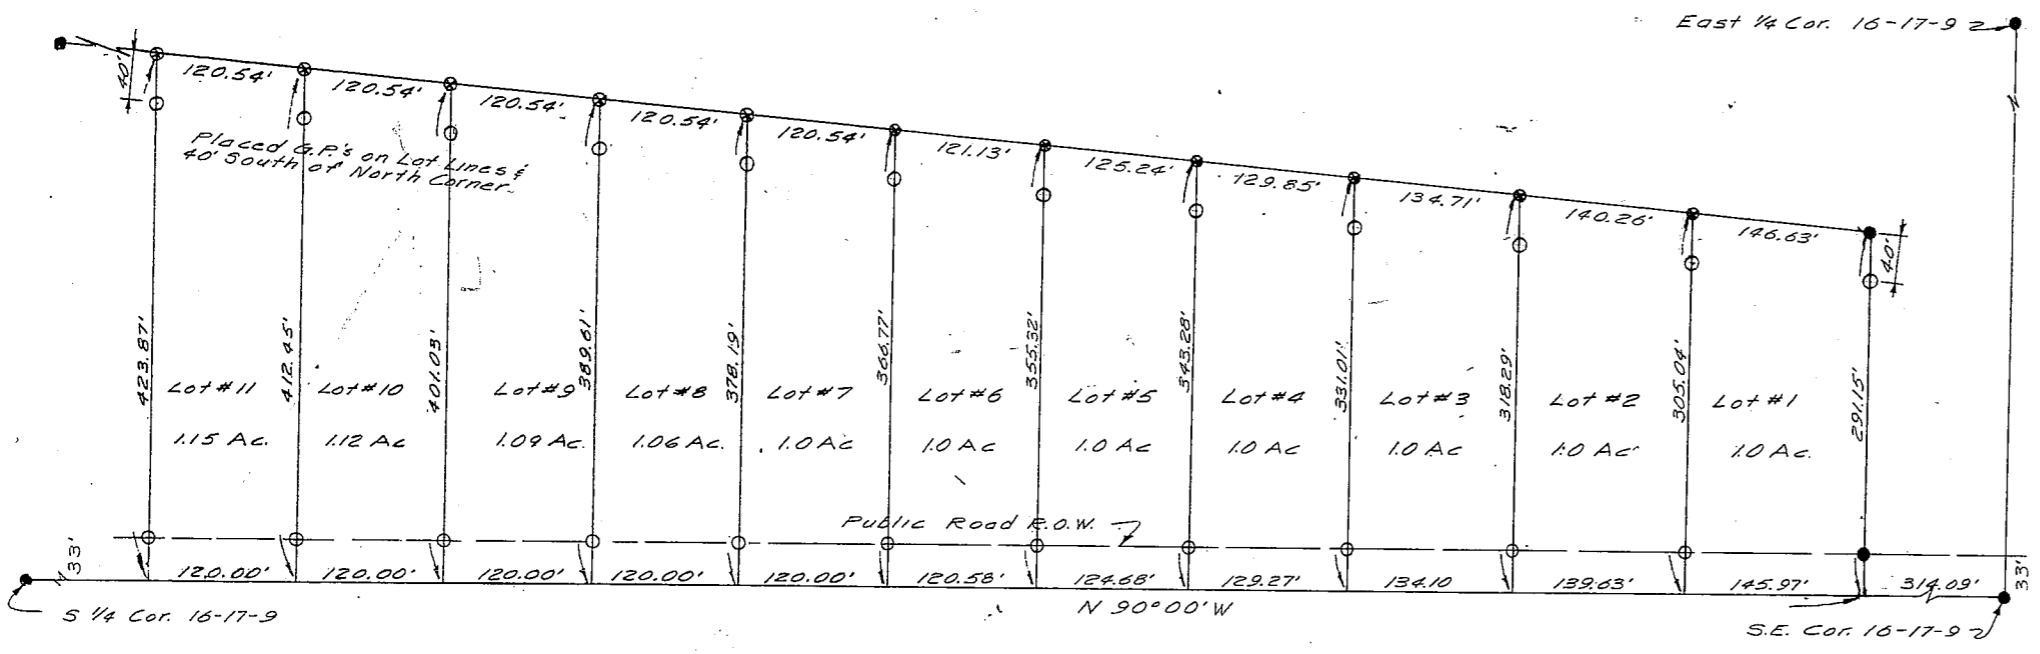 East 1/4 Cor. 16-17-9
40'
120.54'
120.54'
120.54'
120.54'
120.54'
121.13'
125.24'
129.85'
134.71'
140.26'
146.63'
40'
Placed G.P.'s on Lot Lines &
40' South of North Corner.
423.87'
412.45'
401.03'
389.61'
378.19'
366.77'
355.32'
343.28'
331.01'
318.29'
305.04'
291.15'
Lot #11
Lot #10
Lot #9
Lot #8
Lot #7
Lot #6
Lot #5
Lot #4
Lot #3
Lot #2
Lot #1
1.15 Ac.
1.12 Ac
1.09 Ac.
1.06 Ac.
1.0 Ac
1.0 Ac
1.0 Ac
1.0 Ac
1.0 Ac
1.0 Ac
1.0 Ac.
Public Road R.O.W.
33'
120.00'
120.00'
120.00'
120.00'
120.00'
120.58'
124.68'
129.27'
134.10
139.63'
145.97'
314.09'
33'
N 90°00'W
S 1/4 Cor. 16-17-9
S.E. Cor. 16-17-9